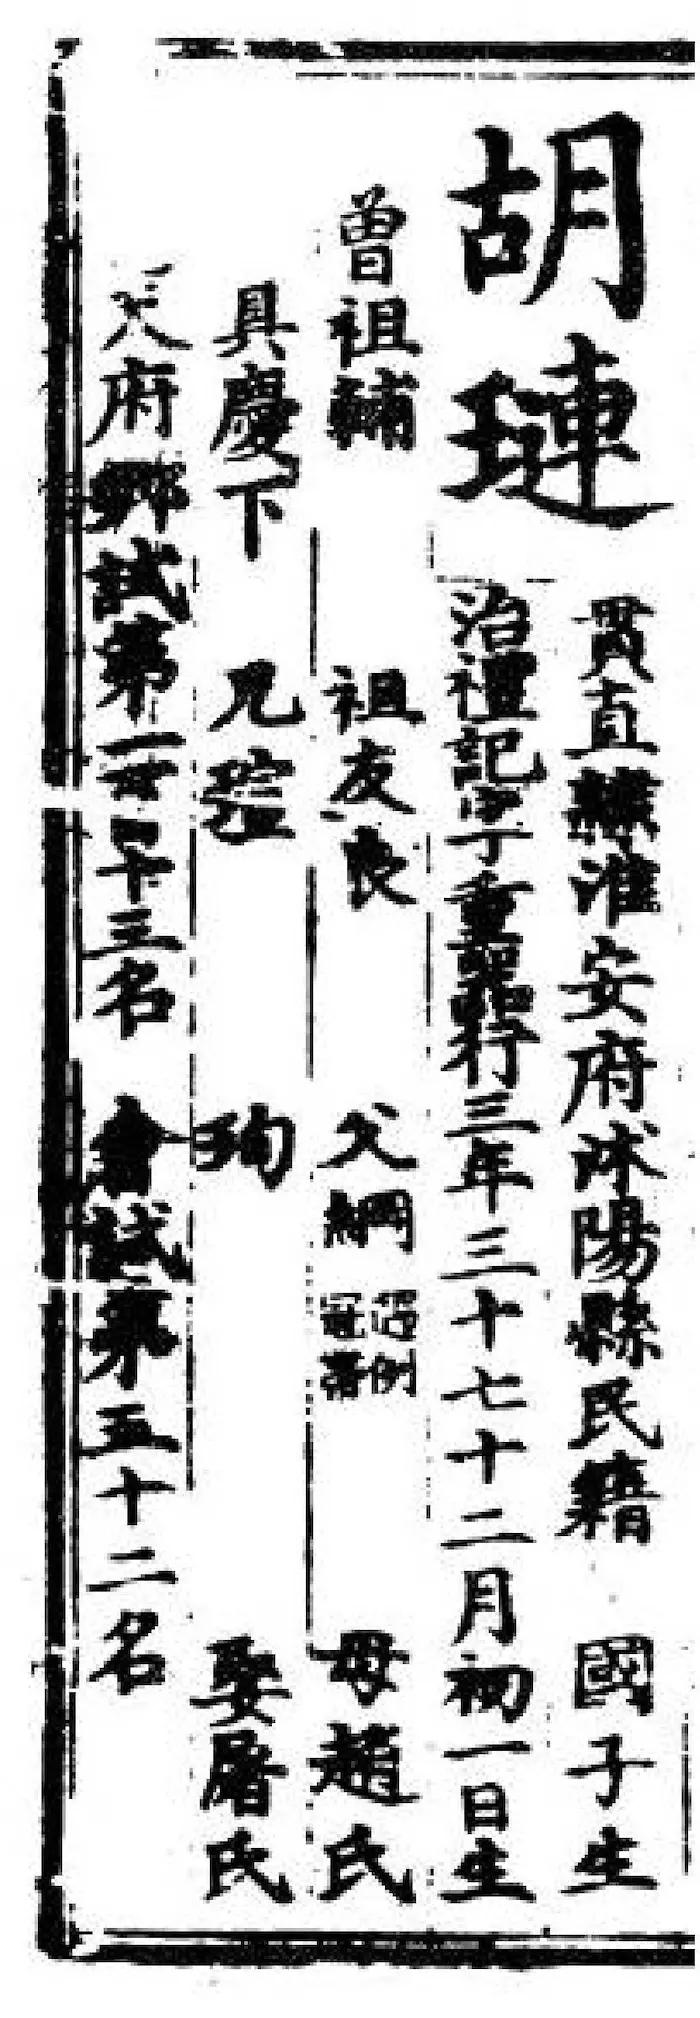 胡璉
貫直隸淮安府沭陽縣民籍 國子生
治禮記字重器行三年三十七十二月初一日生
曾祖輔 祖友良 父綱 冠帶 母趙氏
具慶下 兄 珣 娶屠氏
府鄉試第一百 十三名 會試第五十二名